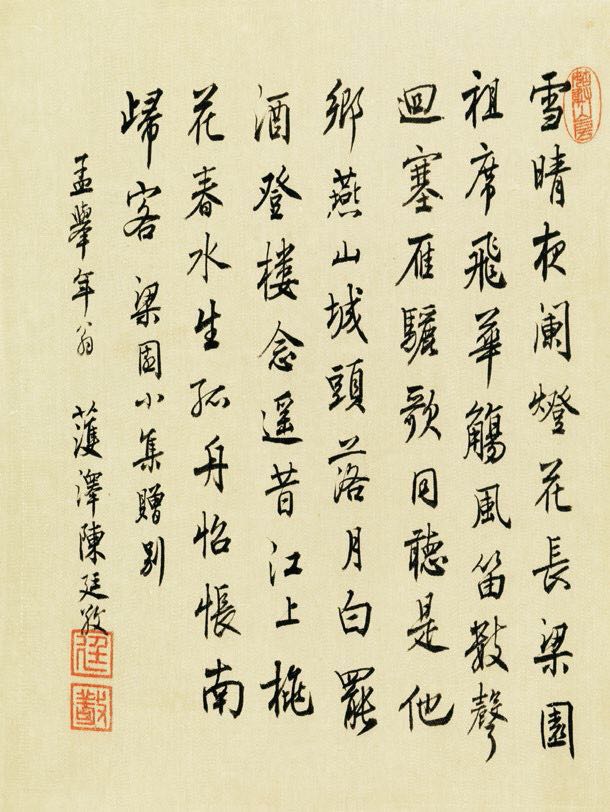 雪晴夜阑燈花長梁園
祖席飛華觴風笛數聲
迴塞雁驪歌同聽是他
鄉燕山城頭落月白罷
酒登樓念遥昔江上桃
花春水生孤舟怡悵南
歸客 梁園小集贈別
孟舉年翁 蒦澤陳廷敬
廷敬